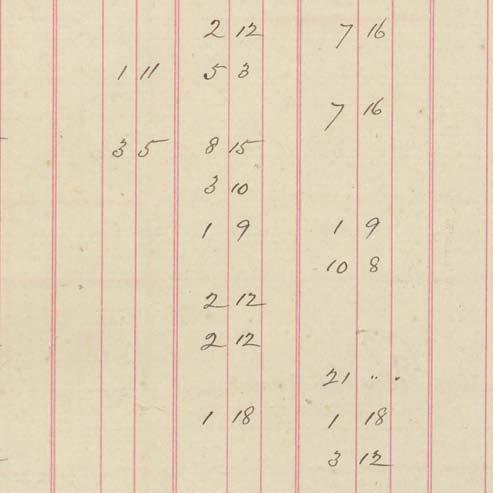 2 12 7 16
1 11 5 3
7 16
3 5 8 15
3 10
1 9 1 9
10 8
2 12
2 12
21 ...
1 18 1 18
3 12